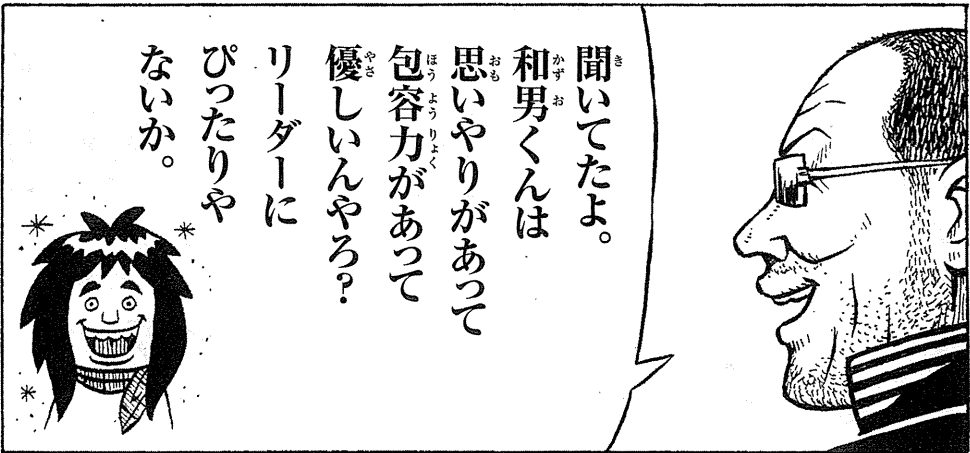 聞いてたよ。
和男くんは
思いやりがあって
包容力があって
優しいんやろ?
リーダーに
ぴったりや
ないか。